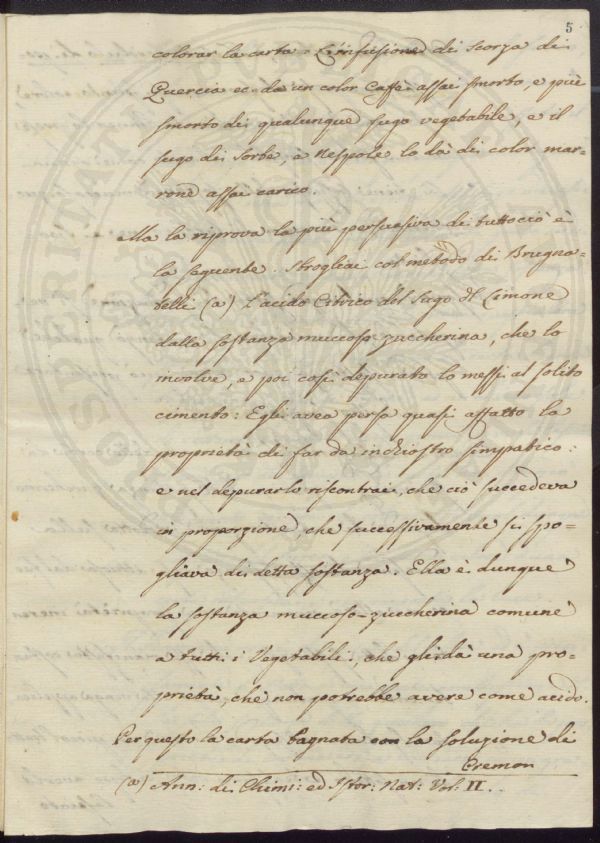 5
colorar la carta. L'infusione di scorza di
Quercia ec. dà un color Caffè assai smorto, e più
smorto di qualunque sugo vegetabile, e il
sugo di Sorbe, e Nespole lo dà di color mar=
rone assai carico.
Ma la riprova la più persuasiva di tuttociò è
la seguente. Strogliai col metodo di Brugna=
telli (a) l'acido Citrico del Sugo di Limone
dalla sostanza muccoso-zuccherina, che lo
involve, e poi così depurato lo messi al solito
cimento: Egli avea perso quasi affatto la
proprietà di far da inchiostro simpatico:
e nel depurarlo riscontrai, che ciò succedeva
in proporzione, che successivamente si spo=
gliava di detta sostanza. Ella è dunque
la sostanza muccoso-zuccherina comune
a tutti i Vegetabili, che gli dà una pro=
prietà, che non potrebbe avere come acido.
Per questo la carta bagnata con la soluzione di
Cremon
(a) Ann: di Chimi: ed Istor: Nat: Vol: II.